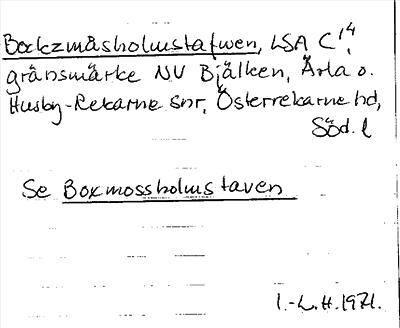 Bockzmåsholmstafwen, LSA C14,
gränsmärke NV Bjälken, Ärla o.
Husby-Rekarne snr, Österrekarne hd,
Söd. l
Se Boxmossholmstaven
I.-L.H. 1971.